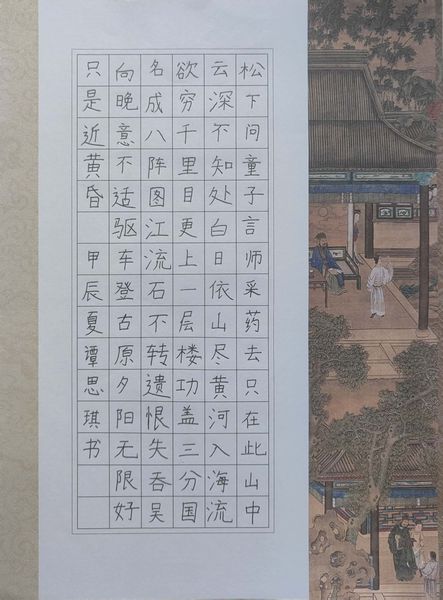 松下问童子言师采药去只在此山中
云深不知处白日依山尽黄河入海流
欲穷千里目更上一层楼功盖三分国
名成八阵图江流石不转遗恨失吞吴
向晚意不适驱车登古原夕阳无限好
只是近黄昏 甲辰夏谭思琪书